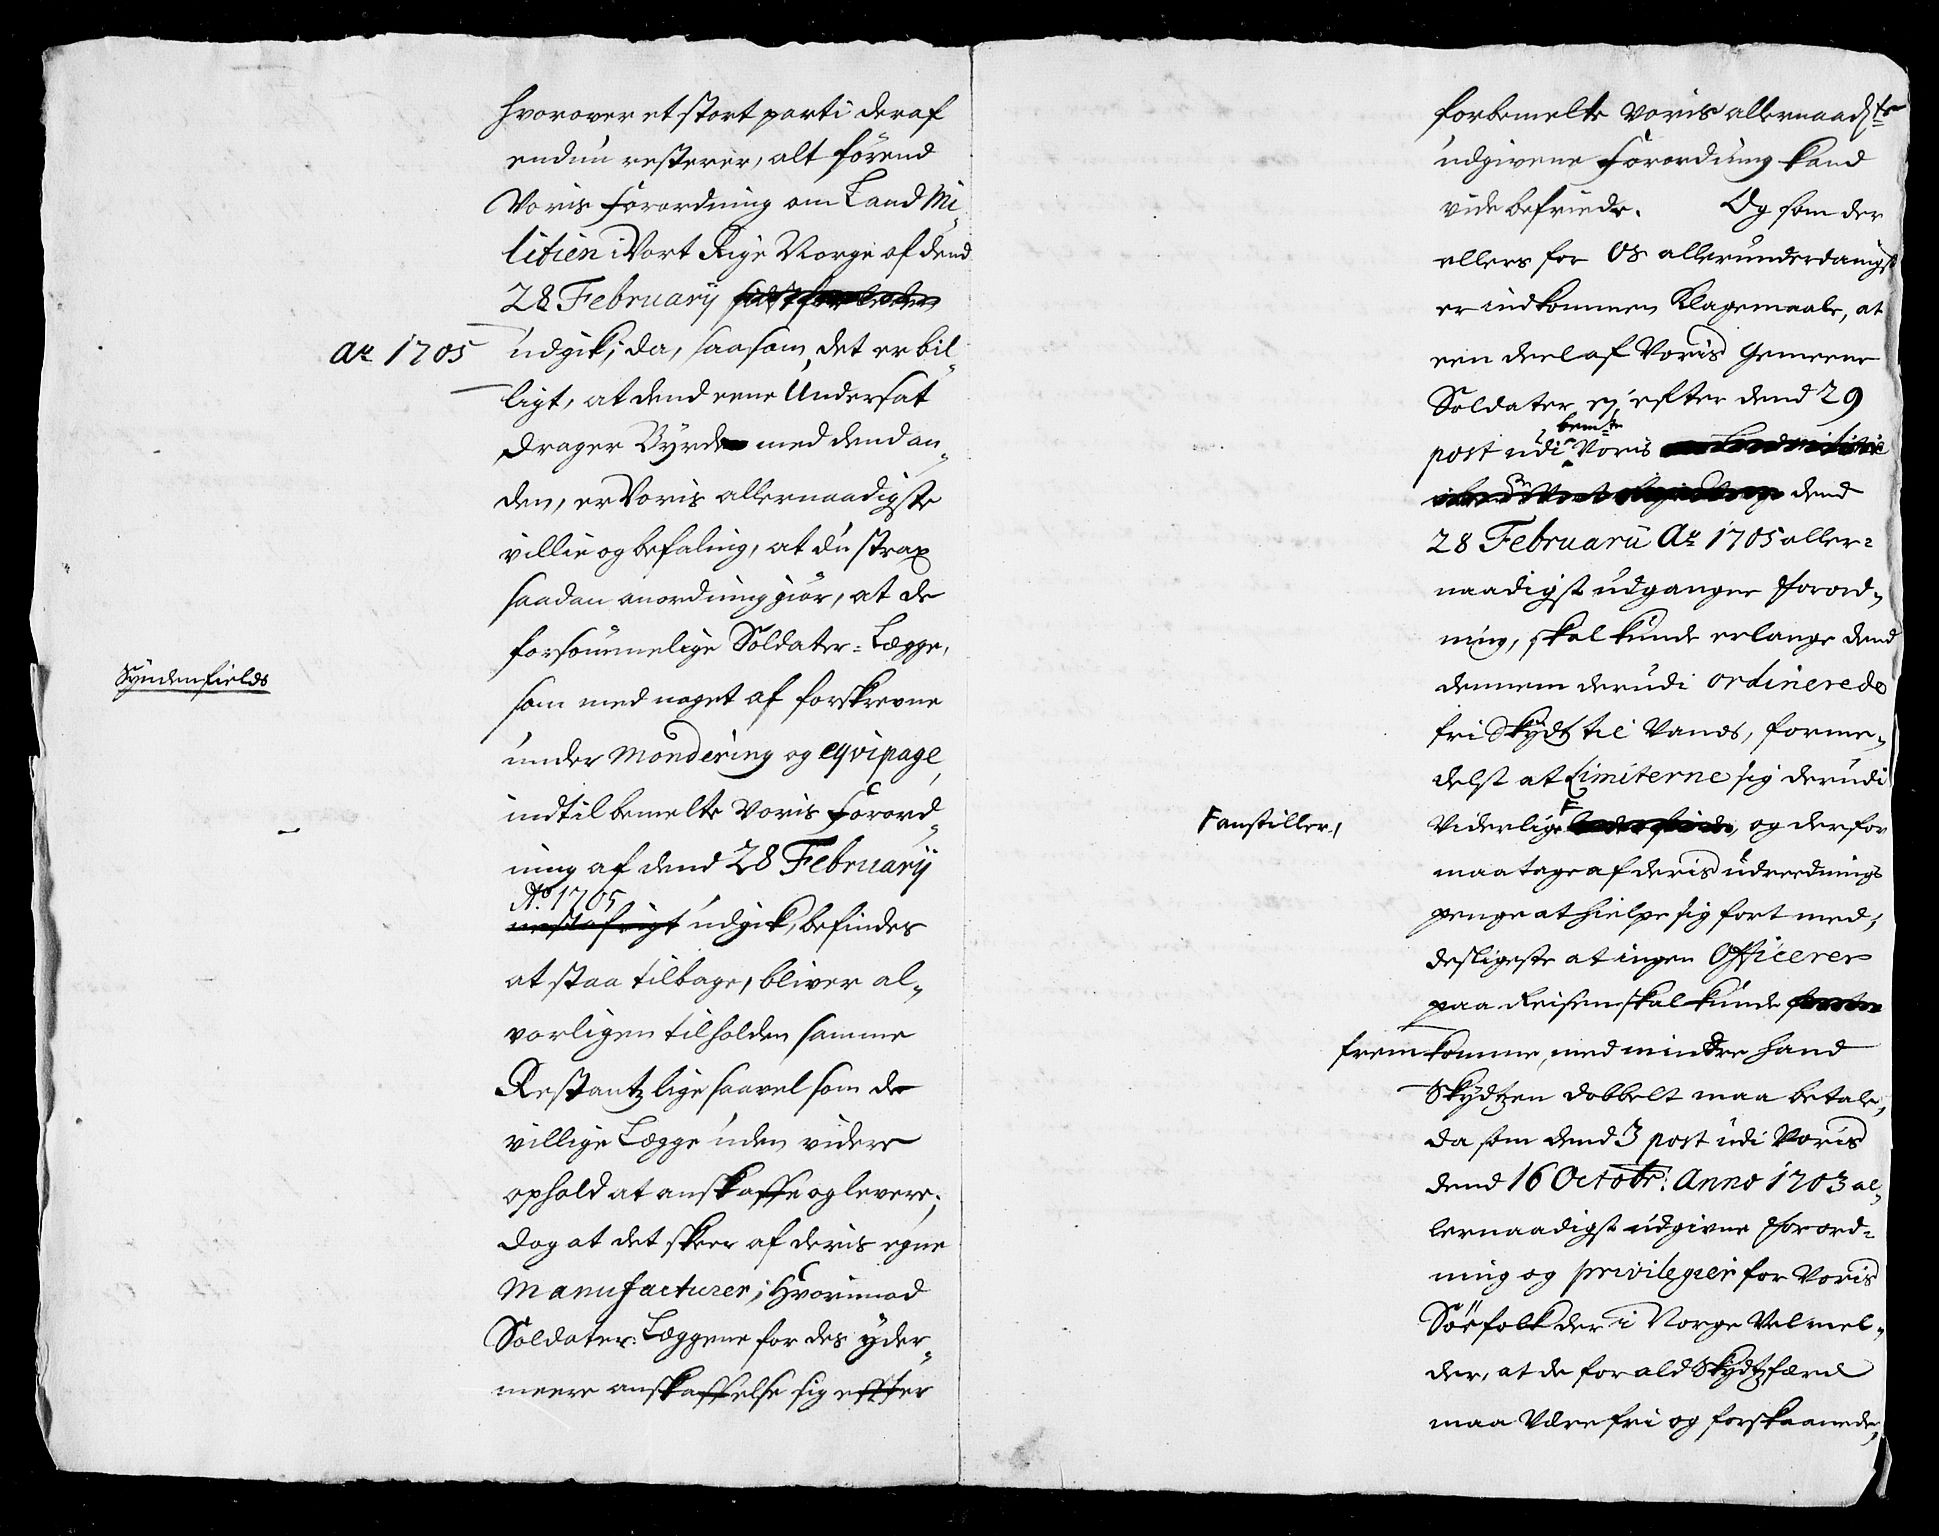 hvorover et stort parti deraf
endnu resterer, alt förend
Voris Forordning om Land Mi-
litien i Vort Rige Norge af dend
28 Februarij sidst forleden
Ao 1705 udgik; da, saasom det er bil-
ligt, at dend eene Undersat
drager Byrde med dend an-
den, er Voris allernaadigste
villie og befaling, at du strax
saadan anordning giör, at de
forsömmelige Soldater-Lægge,
Syndenfields
som med noget af forskrevne
under Mondering og eqvipage,
indtil bemelte Voris Forord-
ning af dend 28 Februarij
Ao. 1705
nestafvigt udgik, befindes
at staa tilbage, bliver al-
vorligen tilholden samme
Restantz lige saavel som de
villige Lægge uden videre
ophold at anskaffe og levere,
dog at det skeer af deris egne
Manufacturer; Hvorimod
Soldater-Læggene for des yder-
meere anskaffelse sig effter
forbemelte Voris allernaadste
udgivene Forordning kand
vide befriede. Og som der
ellers for Os allerunderdanigst
er indkommen Klagemaale, at
een deel af Voris Gemeene
Soldater ej efter dend 29
bemte
post udi Voris om Land militie
dend
28 Februarii Ao 1705 aller-
naadigst udgangne Forord-
ning, skal kunde erlange dend
dennem derudi ordinerede
fri Skydtz til Vands, forme-
delst at Limiterne sig derudi
F anstiller,
Viderlige F, og derfor
maa tage af deris udreednings
penge at hielpe sig fort med;
desligeste at ingen Officerer
paa Reisen skal kunde
fremkomme, med mindre hand
Skydtzen dobbelt maa betale,
da som dend 3 post udi Voris
dend 16 Octobr: Anno 1703 al-
lernaadigst udgivne Forord-
ning og privilegier for Voris
Söefolk der i Norge Velmel-
der, at de for ald Skydtzfærd
maa være fri og forskaanede,